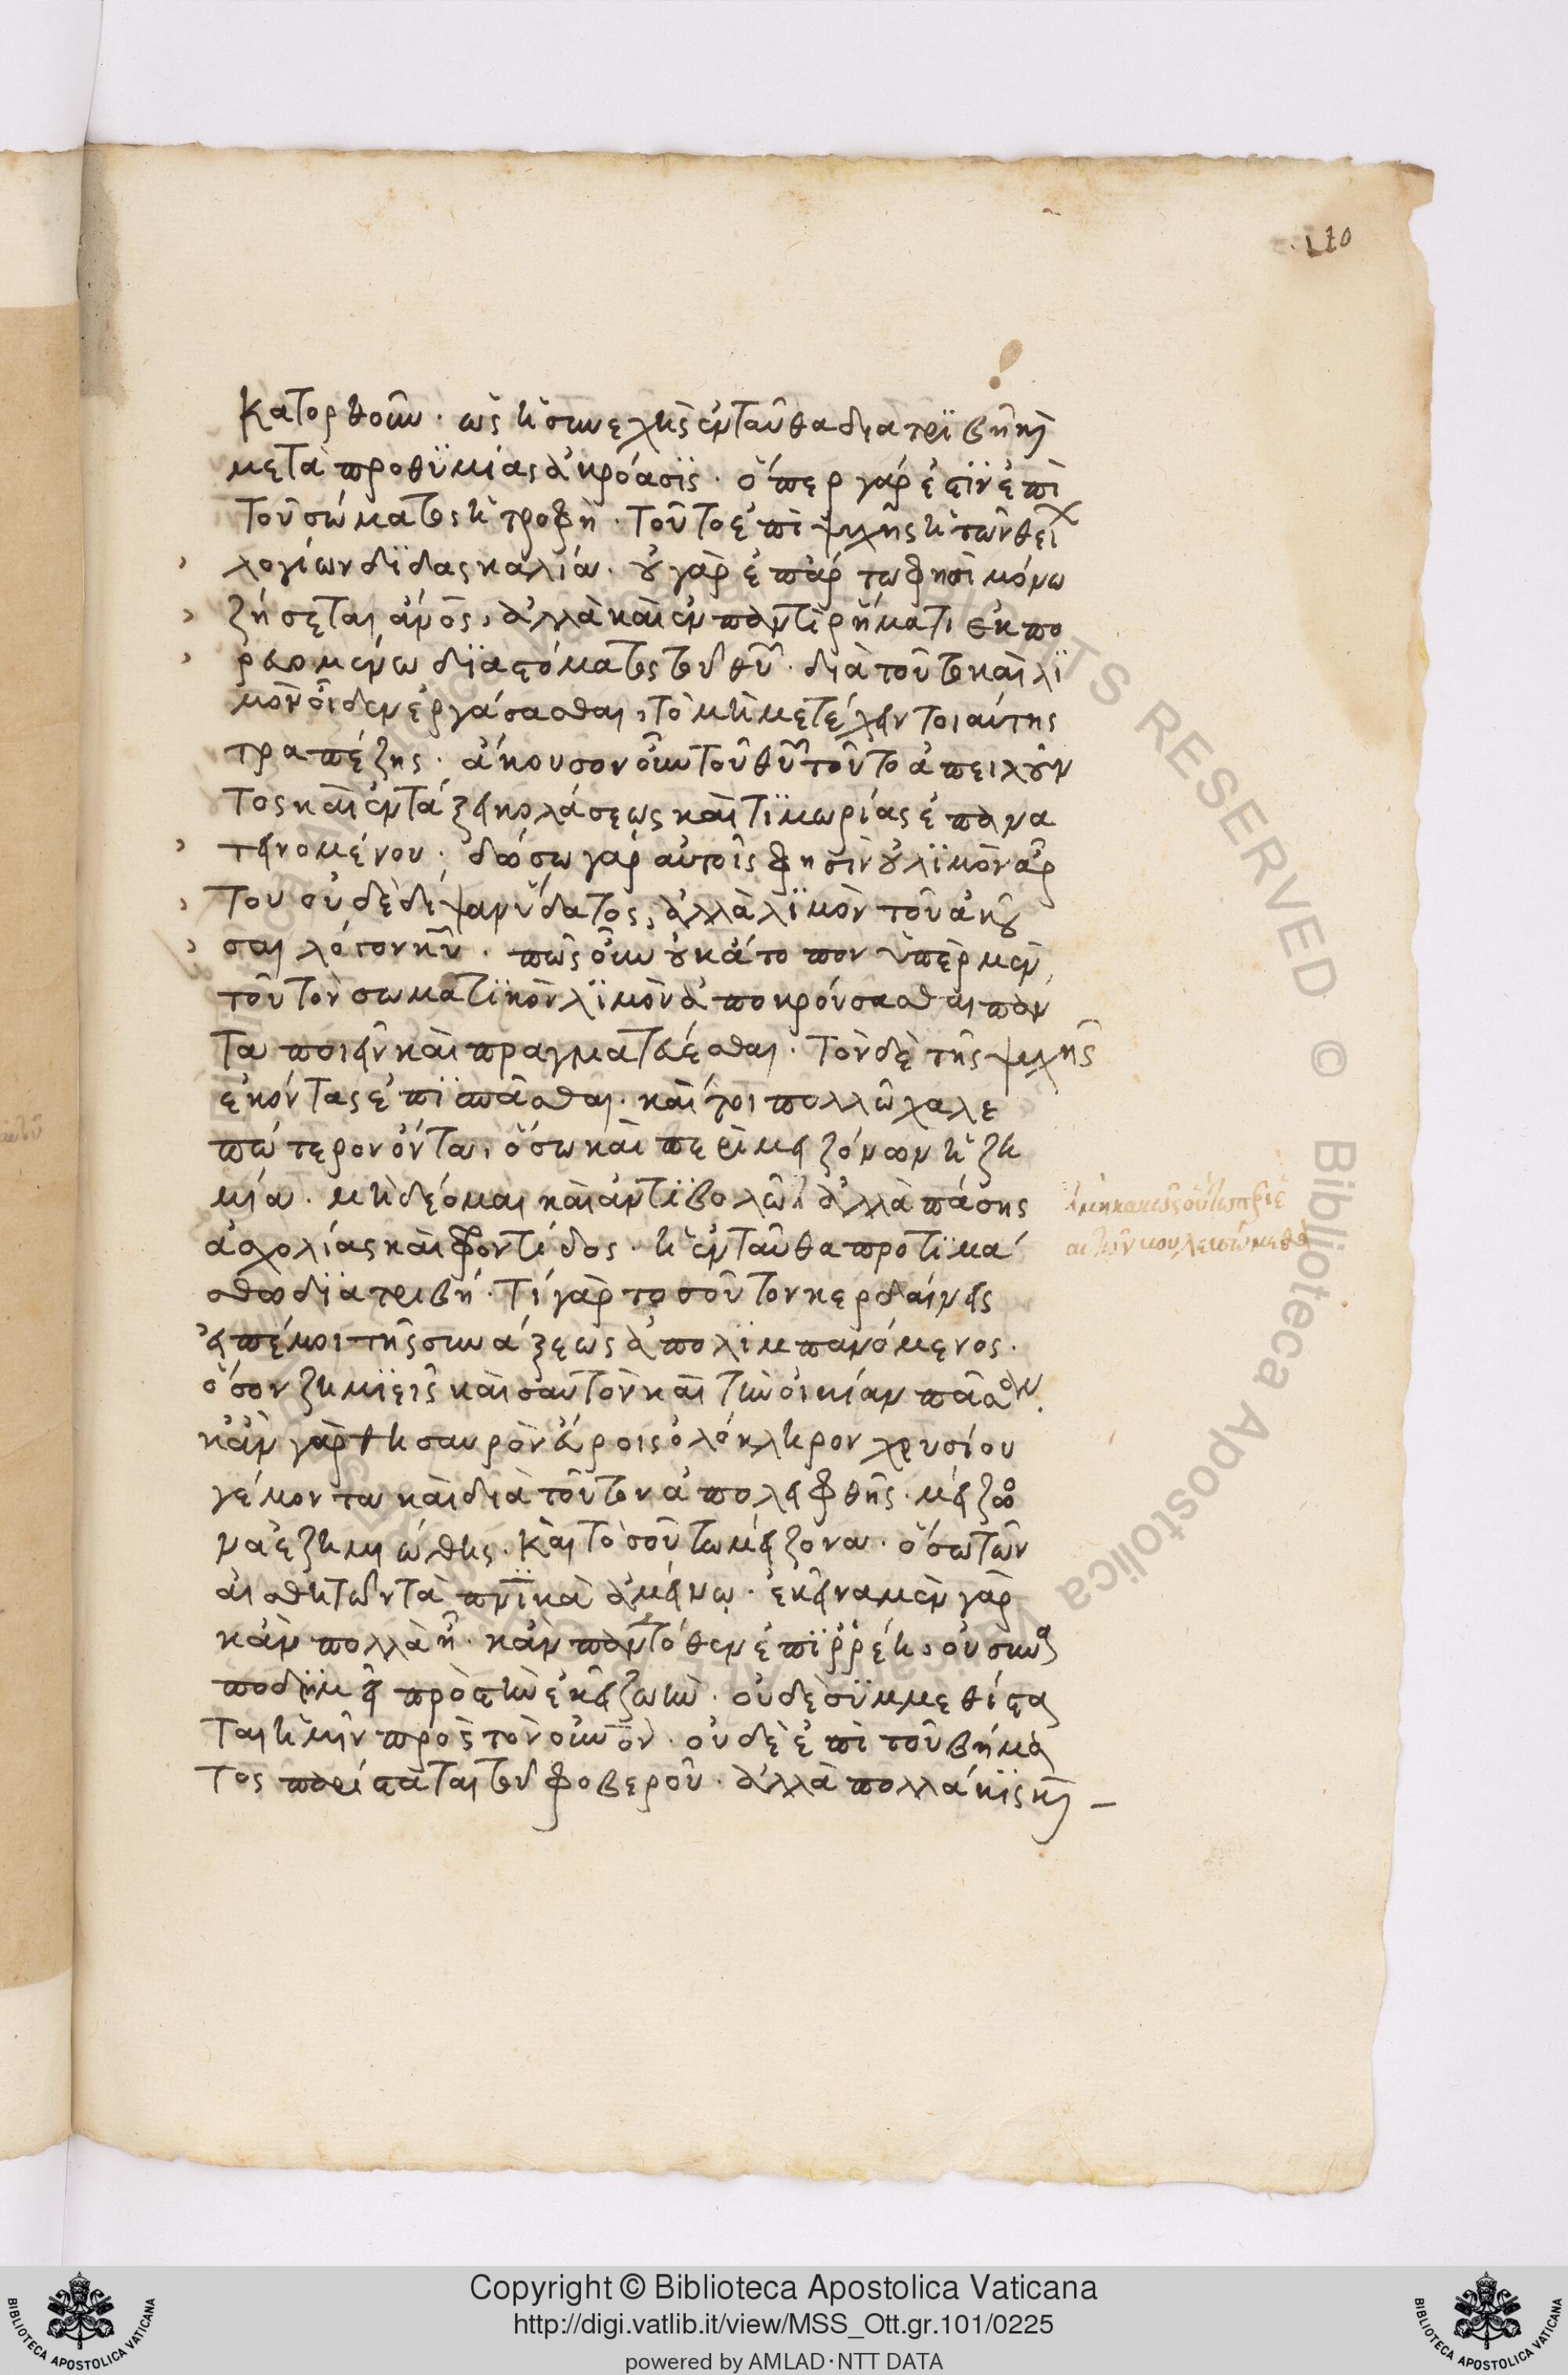 110
κατορθοῦν· ὡς ἡ συνεχὴς ἐνταῦθα διατριβὴ κ(αὶ)
μετὰ προθυμίας ἀκρόασις· ὅπερ γάρ ἐστιν ἐπὶ
τοῦ σώματος ἡ τροφὴ· τοῦτο ἐπὶ ψυχῆς ἡ τῶν θεί
λογίων διδασκαλία· οὐ γὰρ ἐπ' ἄρτω φησὶ μόνω
ζήσεται ἄνος, ἀλλὰ καὶ ἐν παντὶ ῥήματι ἐκπο
ρευομένω διὰ στόματος τοῦ θυ· διὰ τοῦτο καὶ λι
μὸν οἶδεν ἐργάσασθαι, τὸ μὴ μετέχειν τοιαύτης
τραπέζης· ἄκουσον οὖν τοῦ θυ τοῦτο ἀπειλοῦν
τος καὶ ἐν τάξει κολάσεως καὶ τιμωρίας ἐπανα
τεινομένου· δώσω γὰρ αὐτοῖς φησὶν οὐ λιμὸν ἄρ
του οὐδὲ δίψαν ὕδατος, ἀλλὰ λιμὸν τοῦ ἀκοῦ
σαι λόγον κυ· πῶς οὖν οὐκ ἄτοπον ὑπὲρ μὲν
τοῦ τὸν σωματικὸν λιμὸν ἀποκρούσασθαι πάν
τα ποιεῖν καὶ πραγματεύεσθαι· τὸν δὲ τῆς ψυχῆς
ἑκόντας ἐπισπᾶσθαι· καί τοι πολλῶ χαλε
πώτερον ὄντα, ὅσω καὶ περὶ μειζόνων ἡ ζη
μία· μὴ δέομαι καὶ ἀντιβολῶ ἀλλὰ πάσης
ἀσχολίας καὶ φροντίδος· ἡ ἐνταῦθα προτιμά
σθω διατριβή· τί γὰρ τοσοῦτον κερδαίνεις
εἰπέ μοι τῆς συνάξεως ἀπολιμπανόμενος·
ὅσον ζημιεῖς καὶ σαυτὸν καὶ τὴν οἰκίαν πᾶσαν·
κἂν γὰρ θησαυρὸν εὕροις ὁλόκληρον χρυσίου
γέμοντα καὶ διὰ τοῦτον ἀπολειφθῆς· μείζο
να ἐζημιώθης· καὶ τοσούτω μείζονα· ὅσω τῶν
αἰσθητῶν τὰ πνικὰ ἀμείνω· ἐκεῖνα μὲν γὰρ
κἂν πολλὰ ἦ· κἂν παντόθεν ἐπιρρέη, οὐ συνα
ποδημεῖ πρὸς τὴν ἐκεῖ ζωὴν· οὐδὲ συμμεθίστα
ται ἡμῖν πρὸς τὸν οὐνον· οὐδὲ ἐπὶ τοῦ βήμα
τος παρίσταται τοῦ φοβεροῦ· ἀλλὰ πολλάκις κ(αὶ)
Copyright © Biblioteca Apostolica Vaticana
http://digi.vatlib.it/view/MSS_Ott.gr.101/0225
powered by AMLAD·NTT DATA
BIBLIOTECA APOSTOLICA VATICANA
BIBLIOTECA APOSTOLICA VATICANA